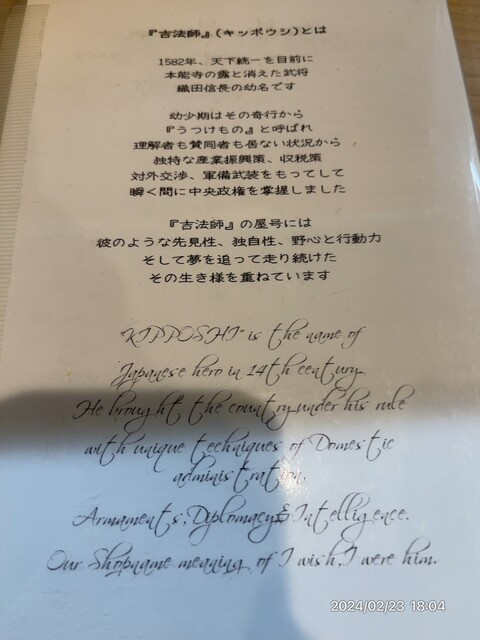 『吉法師』(キッポウシ)とは
1582年、天下統一を目前に
本能寺の露と消えた武将
織田信長の幼名です
幼少期はその奇行から
『うつけもの』と呼ばれ
理解者も賛同者も居ない状況から
独特な産業振興策、収税策
対外交渉、軍備武装をもってして
瞬く間に中央政権を掌握しました
『吉法師』の屋号には
彼のような先見性、独自性、野心と行動力
そして夢を追って走り続けた
その生き様を重ねています
"KIPPOSHI" is the name of
Japanese hero in 14th century.
He brought the country under his rule
with unique techniques of Domestic
administration,
Armaments,Diplomacy&Intelligence.
Our Shopname meaning of I wish,I were him.
2024/02/23 18:04